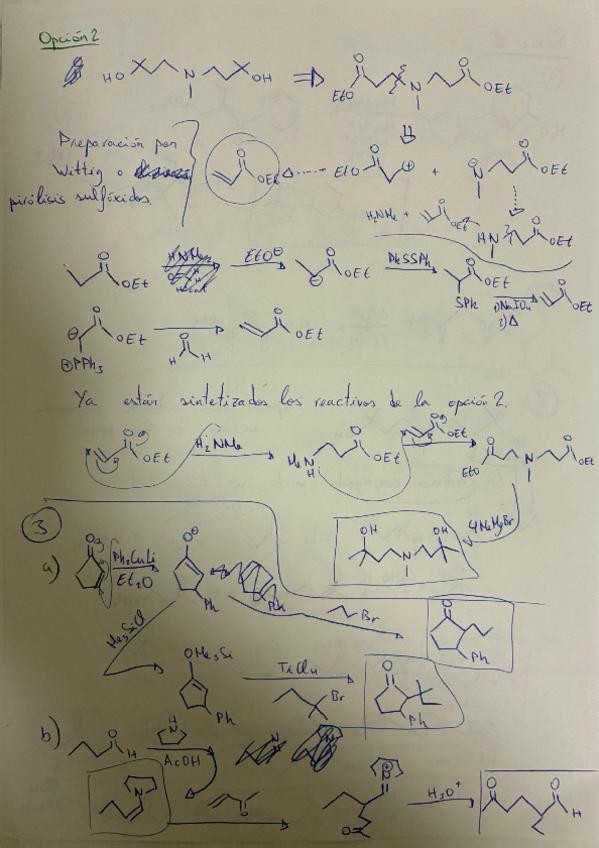 Opción 2
HO N OH ⇒ O EtO N O OEt
Preparación por
Wittig o
pirólisis sulfóxidos.
O OEt EtO O ⊕ + N O OEt
H₂NMe + O OEt HN O OEt
O OEt EtO⊖ O OEt PhSSPh O OEt SPh 1) NaIO₄ 2) Δ O OEt
⊖ O OEt ⊕PPh₃ O H H O OEt
Ya están sintetizados los reactivos de la opción 2.
O OEt H₂NMe MeN H O OEt O OEt EtO O N O OEt
4 MeMgBr
OH N OH
3
a) O Ph₂CuLi Et₂O O⊖ Ph Br O Ph
Me₃SiCl OMe₃Si Ph TiCl₄ Br O Ph
b) O H N H AcOH
N O N ⊕ O H₃O⊕ O O H